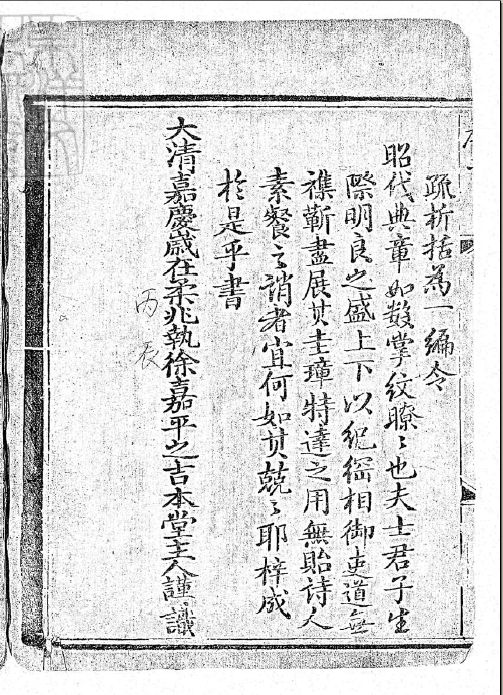 疏析括為一編令
昭代典章如數掌紋瞭〻也夫士君子生
際明良之盛上下以紀綱相御吏道無
襍靳盡展其圭璋特達之用無貽诗人
素餐之誚者宜何如其兢〻耶梓成
於是乎書
大清嘉慶歲在柔兆執徐嘉平之吉本堂主人謹識
丙辰